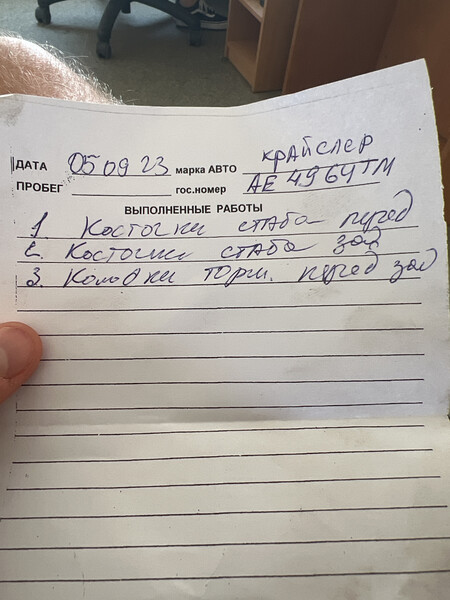 ДАТА 05 09 23 марка АВТО Крайслер
ПРОБЕГ гос.номер АЕ 4964ТМ
ВЫПОЛНЕННЫЕ РАБОТЫ
1 Косточки стаба перед
2. Косточки стаба зад
3. Колодки торм. перед зад